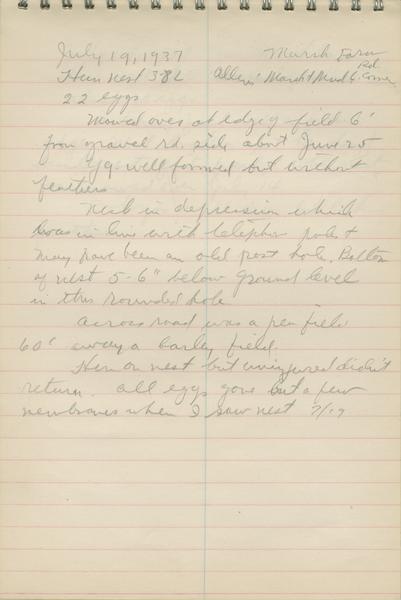 July 19, 1937 Marsh Farm
Hen Nest 382 Allens' Marsh & Mud C Rd Corner
22 eggs
Mowed over at edge of field 6'
from gravel rd. side about June 25
Yg well formed but without
feathers
Nest in depression which
was in line with telephone poles &
may have been an old post hole. Bottom
of nest 5-6" below ground level
in this rounded hole
Across road was a pea field
60' away a barley field.
Hen on nest but uninjured didn't
return. All eggs gone but a few
when I saw nest 7/19